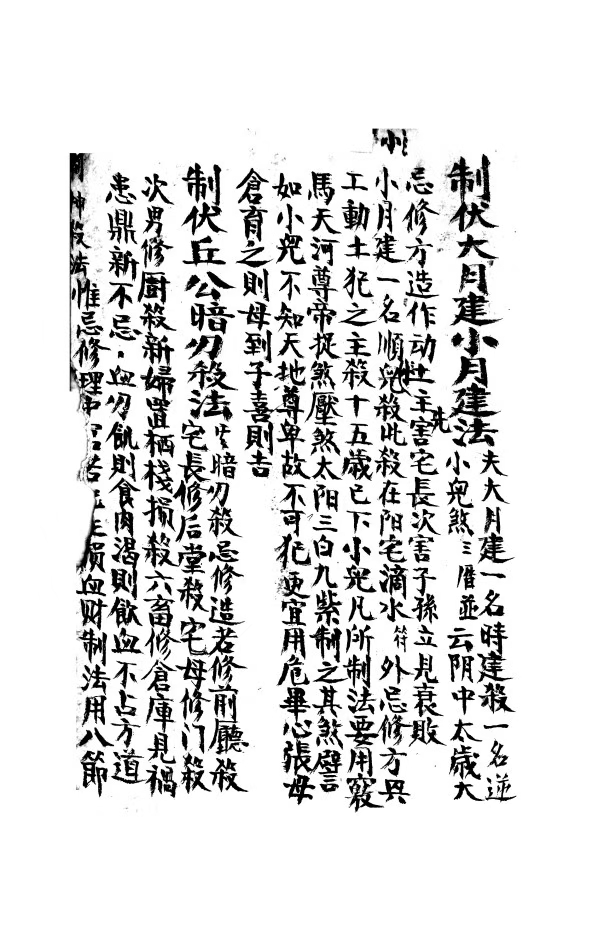 小
制伏大月建小月建法夫大月建一名時建殺一名逆
小兒煞三曆並云阴中太歲大
忌修方造作动土主先害宅長次害子孫立見衰敗
小月建一名順兒殺此殺在阳宅滴水符外忌修方兴
工動土犯之主殺十五歲已下小兒凡所制法要用竅
馬天河尊帝捉煞壓煞太阳三白九紫制之其煞譬言
如小兒不知天地尊卑故不可犯更宜用危畢心張母
倉育之則母到子喜則吉
制伏丘公暗刃殺法暗刃殺忌修造若修前廳殺
宅長修后堂殺宅母修门殺
次男修厨殺新婦置栖棧損殺六畜修倉庫見禍
患鼎新不忌血刃飢則食肉渴則飲血不占方道
神殺法惟忌修理損血财制法用八節